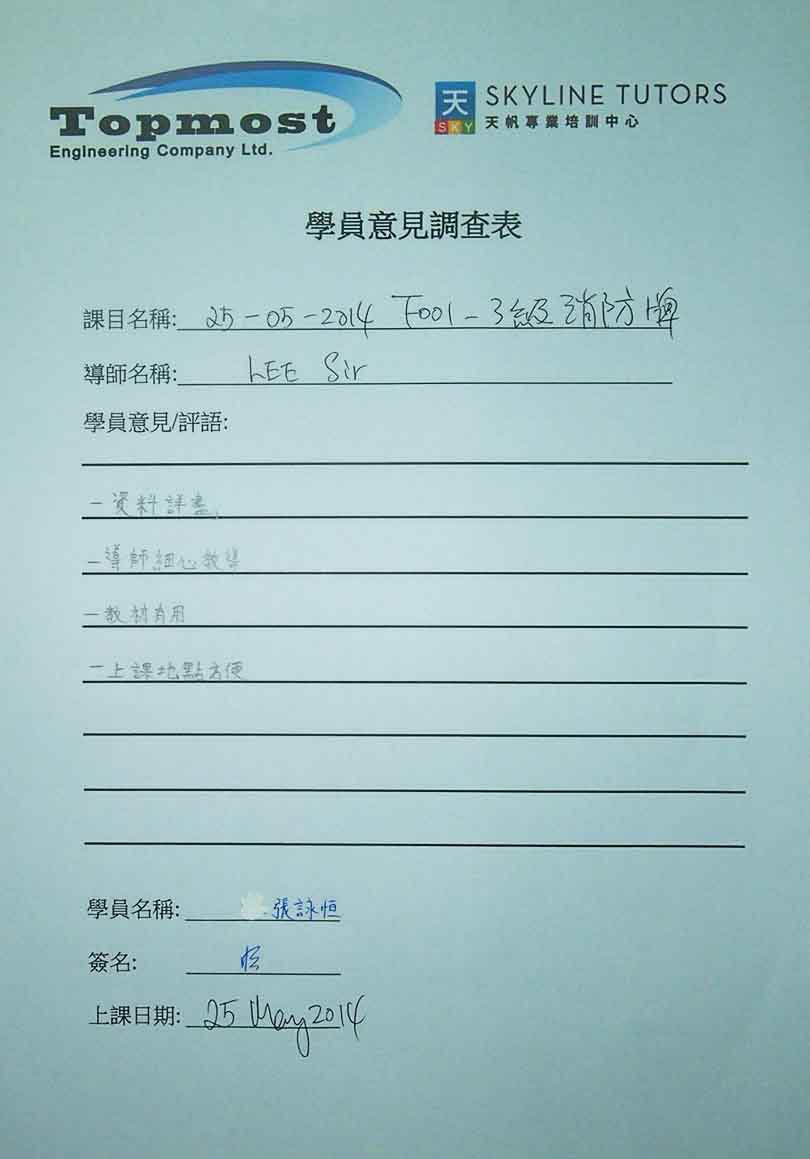 Topmost
Engineering Company Ltd.
天 SKY
SKYLINE TUTORS
天帆專業培訓中心
學員意見調查表
課目名稱: 25-05-2014 F001-3級消防牌
導師名稱: LEE Sir
學員意見/評語:
-資料詳盡,
-導師細心教學
-教材有用
-上課地點方便
學員名稱: 張詠恒
簽名: 恒
上課日期: 25 May 2014